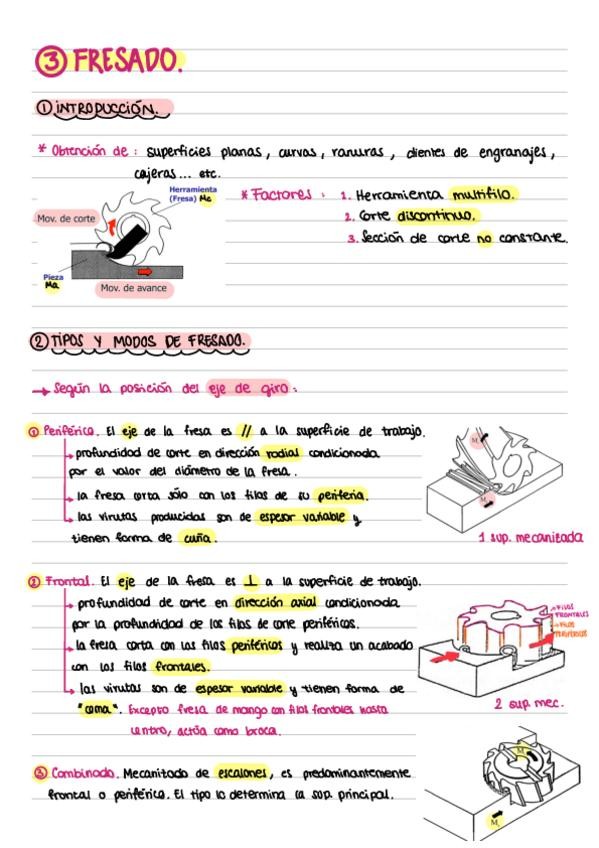 ③ FRESADO.
① INTRODUCCIÓN.
* Obtención de : superficies planas, curvas, ranuras, dientes de engranajes,
cajeras... etc.
Herramienta
(Fresa) Mc
Mov. de corte
Pieza
Ma
Mov. de avance
* Factores : 1. Herramienta multifilo.
2. Corte discontinuo.
3. Sección de corte no constante.
② TIPOS Y MODOS DE FRESADO.
→ Según la posición del eje de giro :
① Periférico. El eje de la fresa es // a la superficie de trabajo.
→ profundidad de corte en dirección radial condicionada
por el valor del diámetro de la fresa.
→ la fresa corta sólo con los filos de su periferia.
→ las virutas producidas son de espesor variable y
tienen forma de cuña.
1 sup. mecanizada
② Frontal. El eje de la fresa es ⊥ a la superficie de trabajo.
→ profundidad de corte en dirección axial condicionada
por la profundidad de los filos de corte periféricos.
→ la fresa corta con los filos periféricos y realiza un acabado
con los filos frontales.
→ las virutas son de espesor variable y tienen forma de
"coma". Excepto fresa de mango con filos frontales hasta
centro, actúa como broca.
FILOS
FRONTALES
FILOS
PERIFÉRICOS
2 sup. mec.
③ Combinado. Mecanizado de escalones, es predominantemente
frontal o periférico. El tipo lo determina la sup. principal.